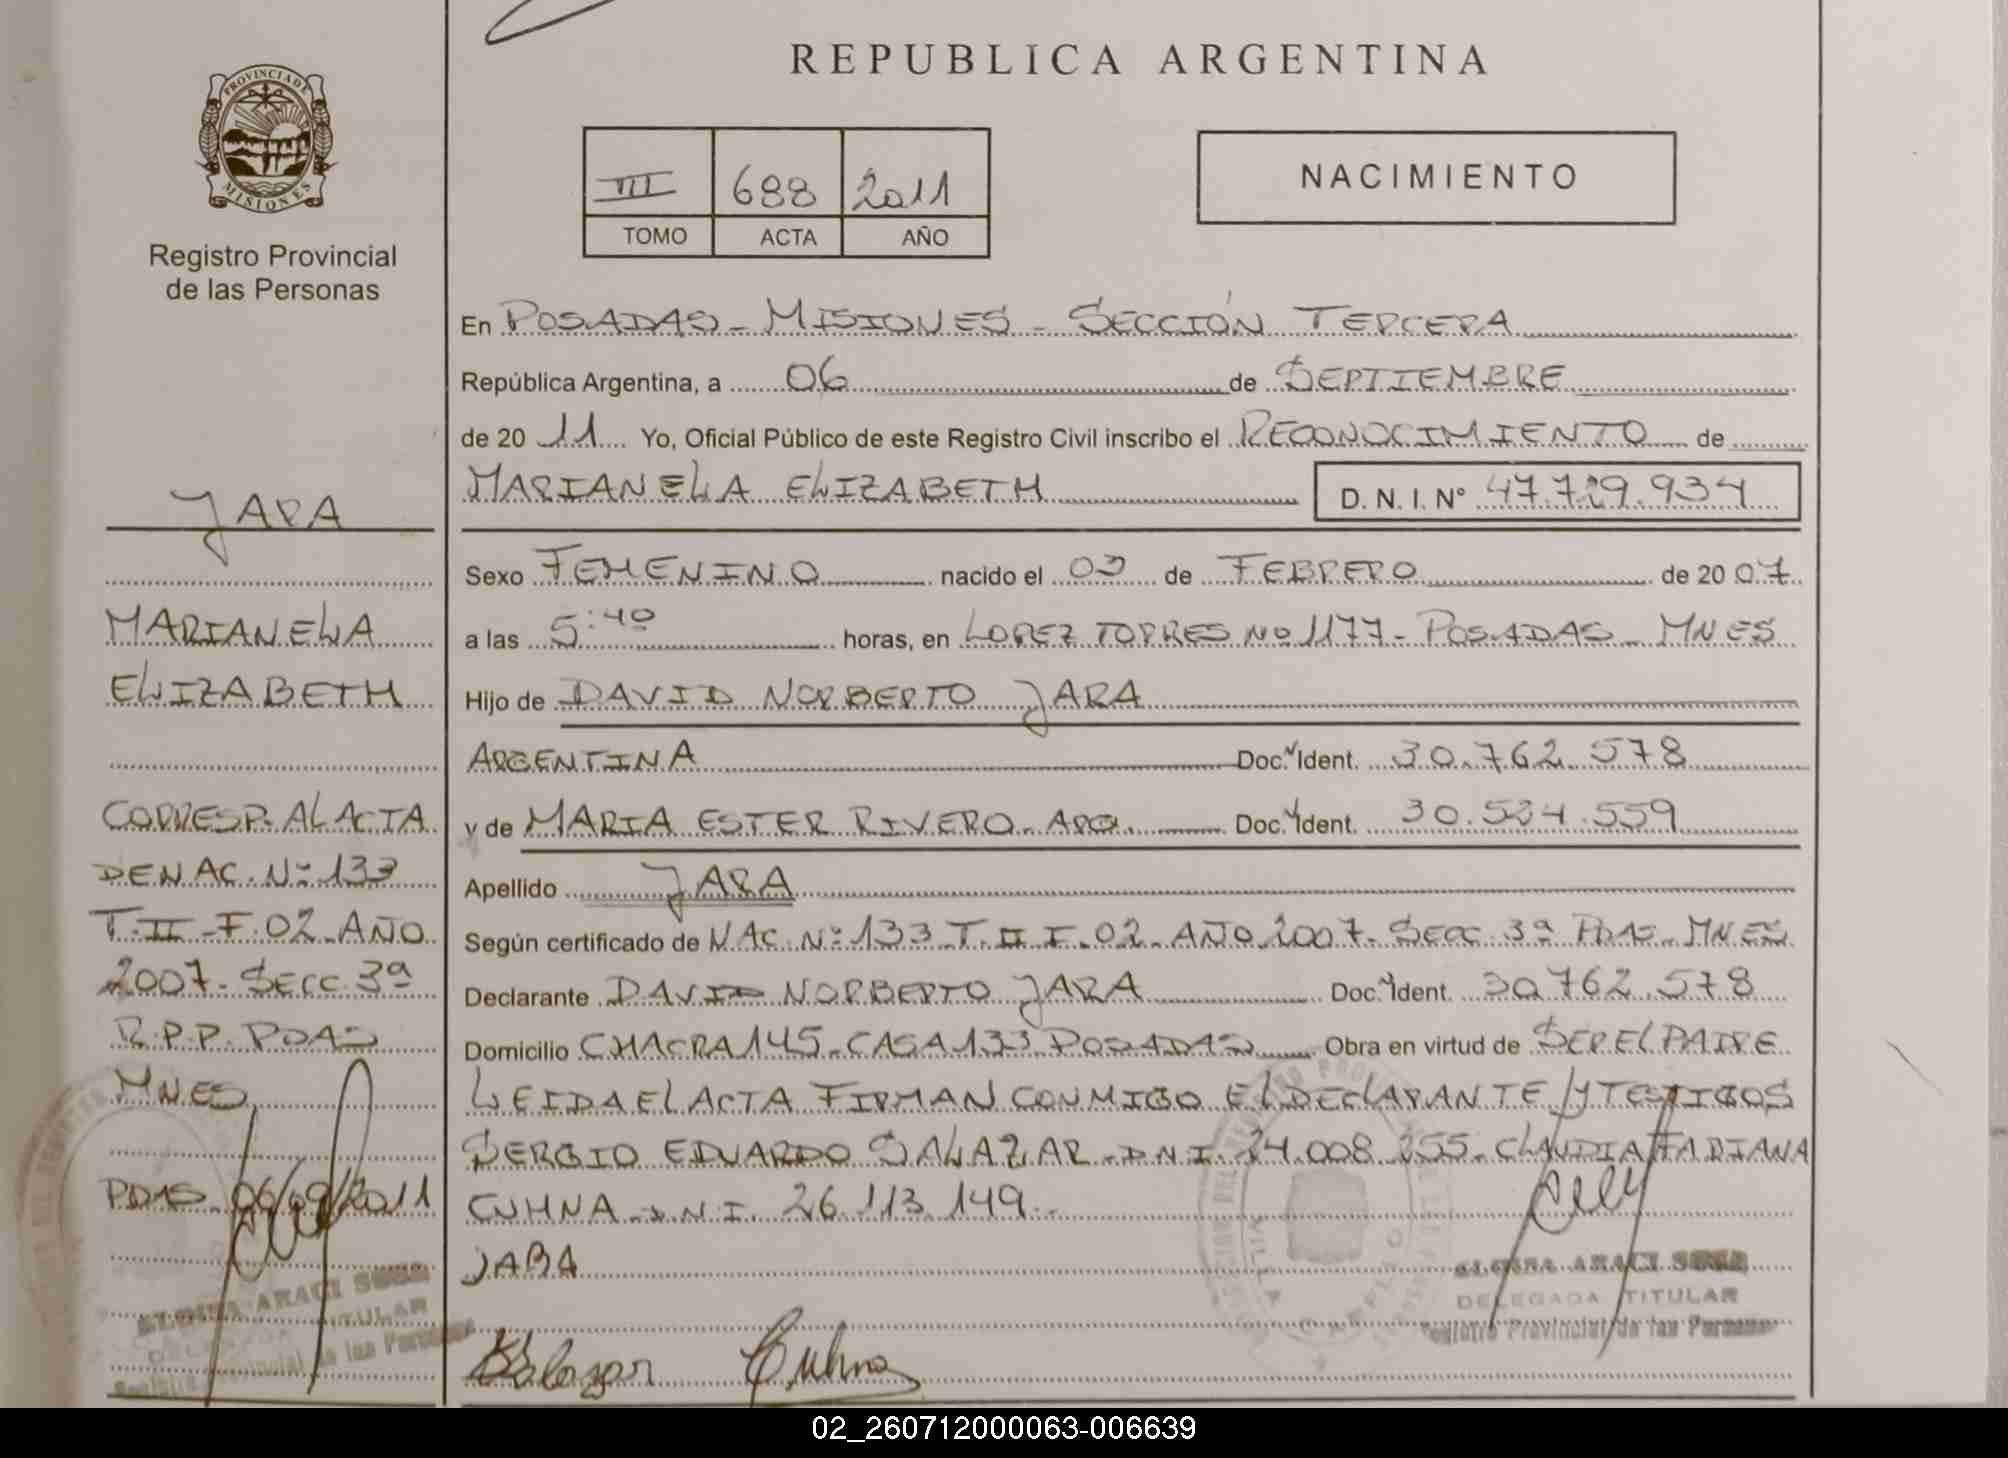 PROVINCIA DE
MISIONES
Registro Provincial
de las Personas
JARA
MARIANELA
ELIZABETH
CORRESP. AL ACTA
DE NAC. Nº 133
T. II - F. 02 - AÑO
2007 - SECC. 3ª
R.P.P. PDAS
MNES
PDAS - 06/09/2011
ARACI
TITULAR
REPUBLICA ARGENTINA
III 688 2011
TOMO ACTA AÑO
NACIMIENTO
En POSADAS - MISIONES - SECCIÓN TERCERA
República Argentina, a 06 de SEPTIEMBRE
de 20 11 Yo, Oficial Público de este Registro Civil inscribo el RECONOCIMIENTO de
MARIANELA ELIZABETH D. N. I. Nº 47.729.934
Sexo FEMENINO nacido el 03 de FEBRERO de 20 07
a las 5:40 horas, en LOPEZ TORRES Nº 1177 - POSADAS - MNES
Hijo de DAVID NORBERTO JARA
ARGENTINA Doc. Ident. 30.762.578
y de MARIA ESTER RIVERO - ARG. Doc. Ident. 30.524.559
Apellido JARA
Según certificado de NAC. Nº 133 T. II F. 02 - AÑO 2007 - SECC. 3ª PDAS - MNES
Declarante DAVID NORBERTO JARA Doc. Ident. 30.762.578
Domicilio CHACRA 145 - CASA 133 POSADAS Obra en virtud de SER EL PADRE
LEIDA EL ACTA FIRMAN CONMIGO EL DECLARANTE Y TESTIGOS
SERGIO EDUARDO SALAZAR - D.N.I. 24.008.255 - CLAUDIA FABIANA
CUHNA - D.N.I. 26.113.149 -
JARA
ARACI
DELEGADA TITULAR
Registro Provincial de las Personas
Salazar Cuhna
02_260712000063-006639